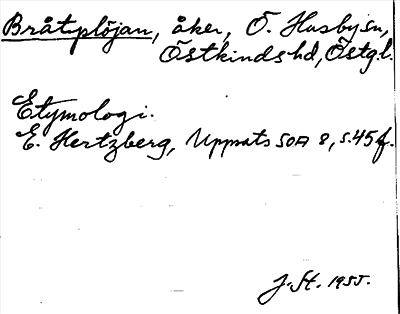 Bråtplöjan, åker, Ö. Husby sn,
Östkinds hd, Östg.l.
Etymologi.
E. Hertzberg, Uppsats SOÄ 8, s. 45 f.
J. St. 1955.